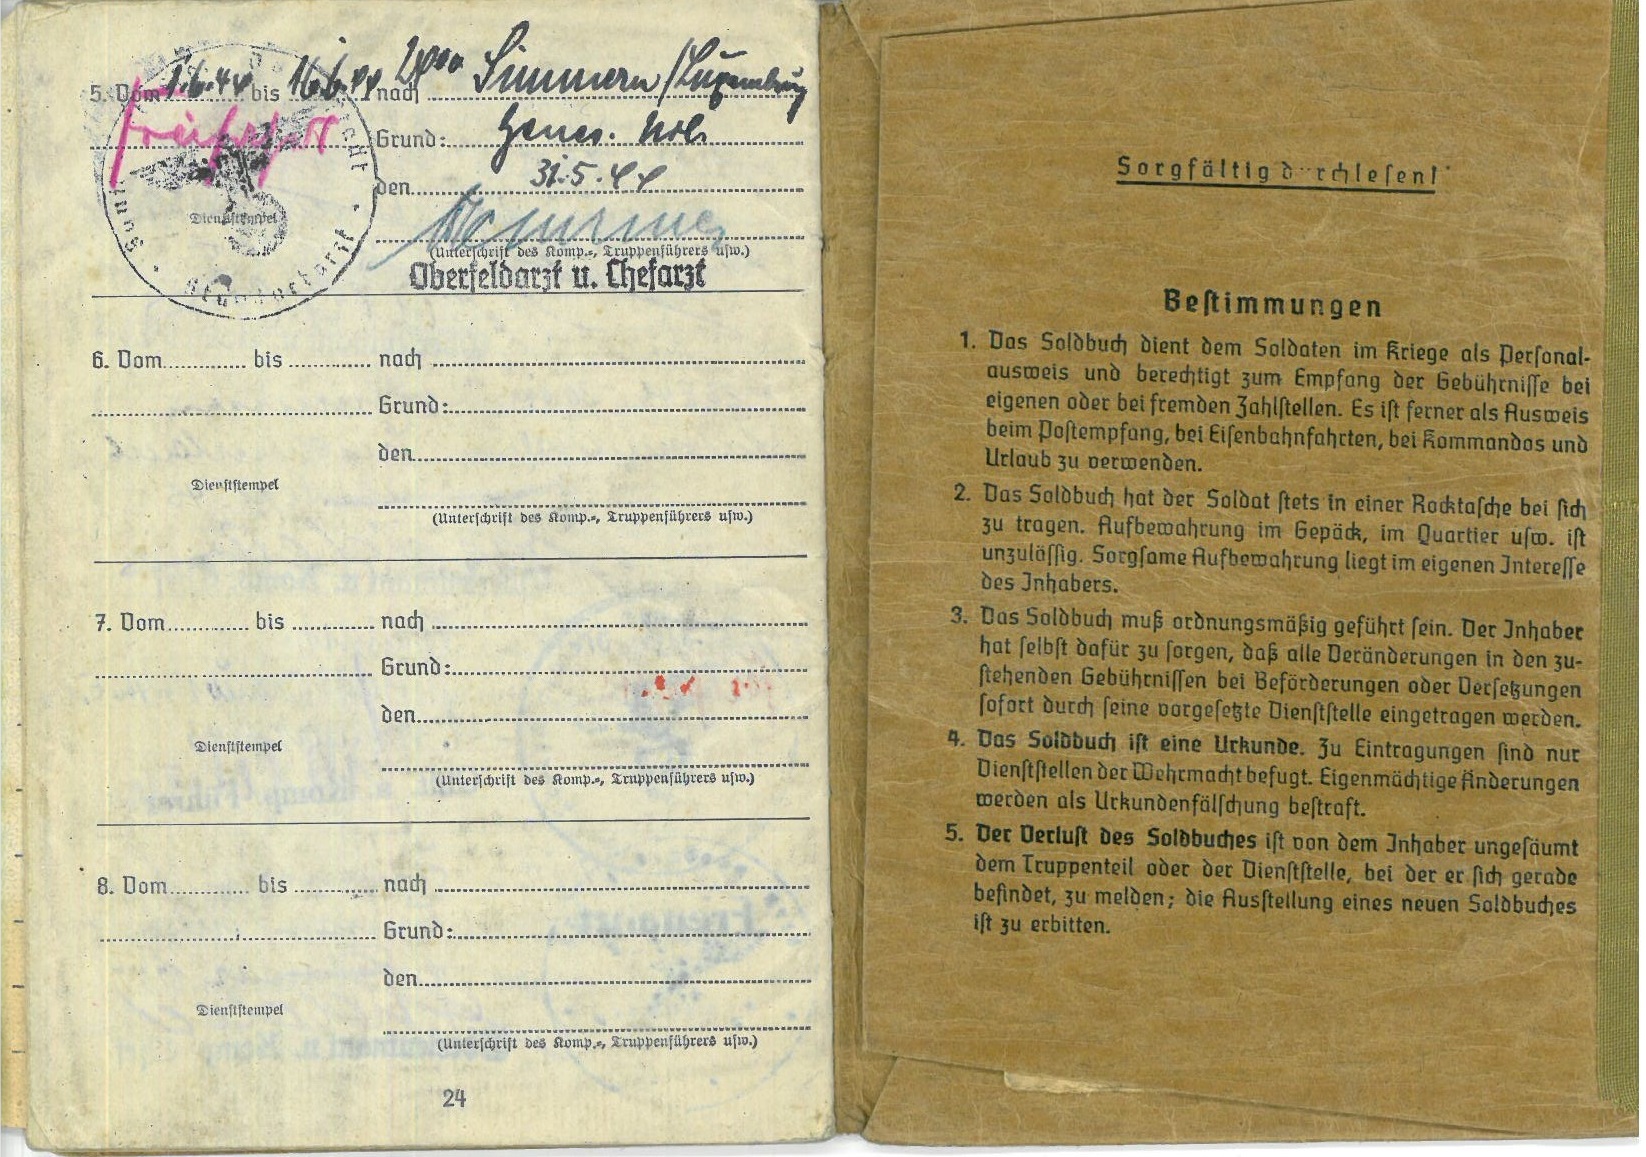 5. Vom 1.6.44 bis 16.6.44 nach 24⁰⁰ Simmern / Luxemburg
Grund: Genes. Urlb.
den 31.5.44
Dienststempel
(Unterschrift des Komp.-, Truppenführers usw.)
Oberfeldarzt u. Chefarzt
6. Vom bis nach
Grund:
den
Dienststempel
(Unterschrift des Komp.-, Truppenführers usw.)
7. Vom bis nach
Grund:
den
Dienststempel
(Unterschrift des Komp.-, Truppenführers usw.)
8. Vom bis nach
Grund:
den
Dienststempel
(Unterschrift des Komp.-, Truppenführers usw.)
24
Sorgfältig durchlesen!
Bestimmungen
1. Das Soldbuch dient dem Soldaten im Kriege als Personal-
ausweis und berechtigt zum Empfang der Gebührnisse bei
eigenen oder bei fremden Zahlstellen. Es ist ferner als Ausweis
beim Postempfang, bei Eisenbahnfahrten, bei Kommandos und
Urlaub zu verwenden.
2. Das Soldbuch hat der Soldat stets in einer Rocktasche bei sich
zu tragen. Aufbewahrung im Gepäck, im Quartier usw. ist
unzulässig. Sorgsame Aufbewahrung liegt im eigenen Interesse
des Inhabers.
3. Das Soldbuch muß ordnungsmäßig geführt sein. Der Inhaber
hat selbst dafür zu sorgen, daß alle Veränderungen in den zu-
stehenden Gebührnissen bei Beförderungen oder Versetzungen
sofort durch seine vorgesetzte Dienststelle eingetragen werden.
4. Das Soldbuch ist eine Urkunde. Zu Eintragungen sind nur
Dienststellen der Wehrmacht befugt. Eigenmächtige Änderungen
werden als Urkundenfälschung bestraft.
5. Der Verlust des Soldbuches ist von dem Inhaber ungesäumt
dem Truppenteil oder der Dienststelle, bei der er sich gerade
befindet, zu melden; die Ausstellung eines neuen Soldbuches
ist zu erbitten.